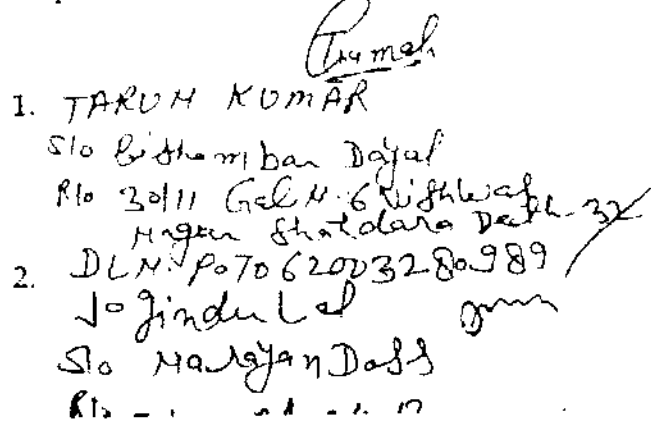 1. TARUN KUMAR
S/o Bishamban Dayal
R/o 30/11 Gali N. 6 Vishwas
Nagar Shahdara Delhi-32
2. DLN. P07062003280989
Joginder Lal
S/o Narayan Dass
R/o